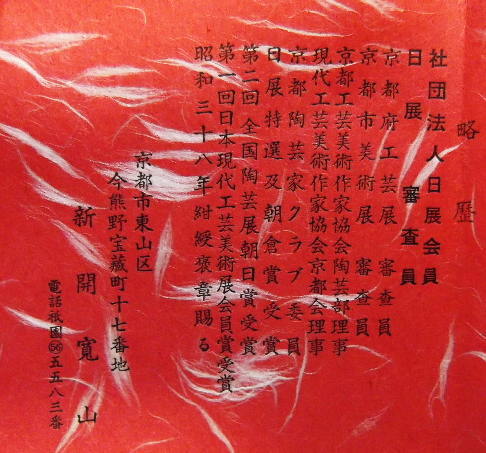 略歴
社団法人日展会員
日展 審査員
京都府工芸展 審査員
京都市美術展 審査員
京都工芸美術作家協会陶芸部理事
現代工芸美術作家協会京都会理事
京都陶芸家クラブ委員
日展特選及朝倉賞受賞
第二回全国陶芸展朝日賞受賞
第一回日本現代工芸美術展会員賞受賞
昭和三十八年紺綬褒章賜る
京都市東山区
今熊野宝蔵町十七番地
新開寛山
電話祇園56五五八三番